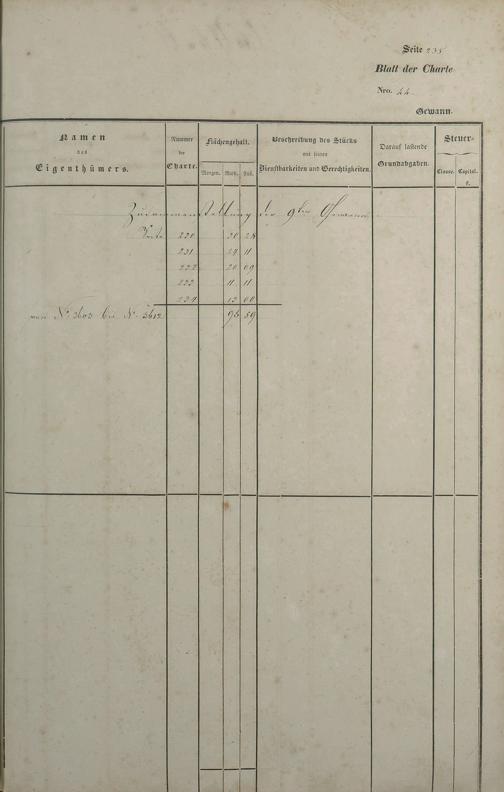 Seite 235
Blatt der Charte
Nro. 44
Gewann.
Namen des Eigenthümers.
Nummer der Charte.
Flächengehalt.
Morgen. Rth. Fuß.
Beschreibung des Stücks mit seinen Dienstbarkeiten und Gerechtigkeiten.
Darauf lastende Grundabgaben.
Steuer-
Classe. Capital. fl.
Zusammenstellung der 9ten Gewann
Seite 230 20 28
231 29 11
232 20 09
233 11 11
234 13 00
von No. 3603 bis No. 3612 95 59